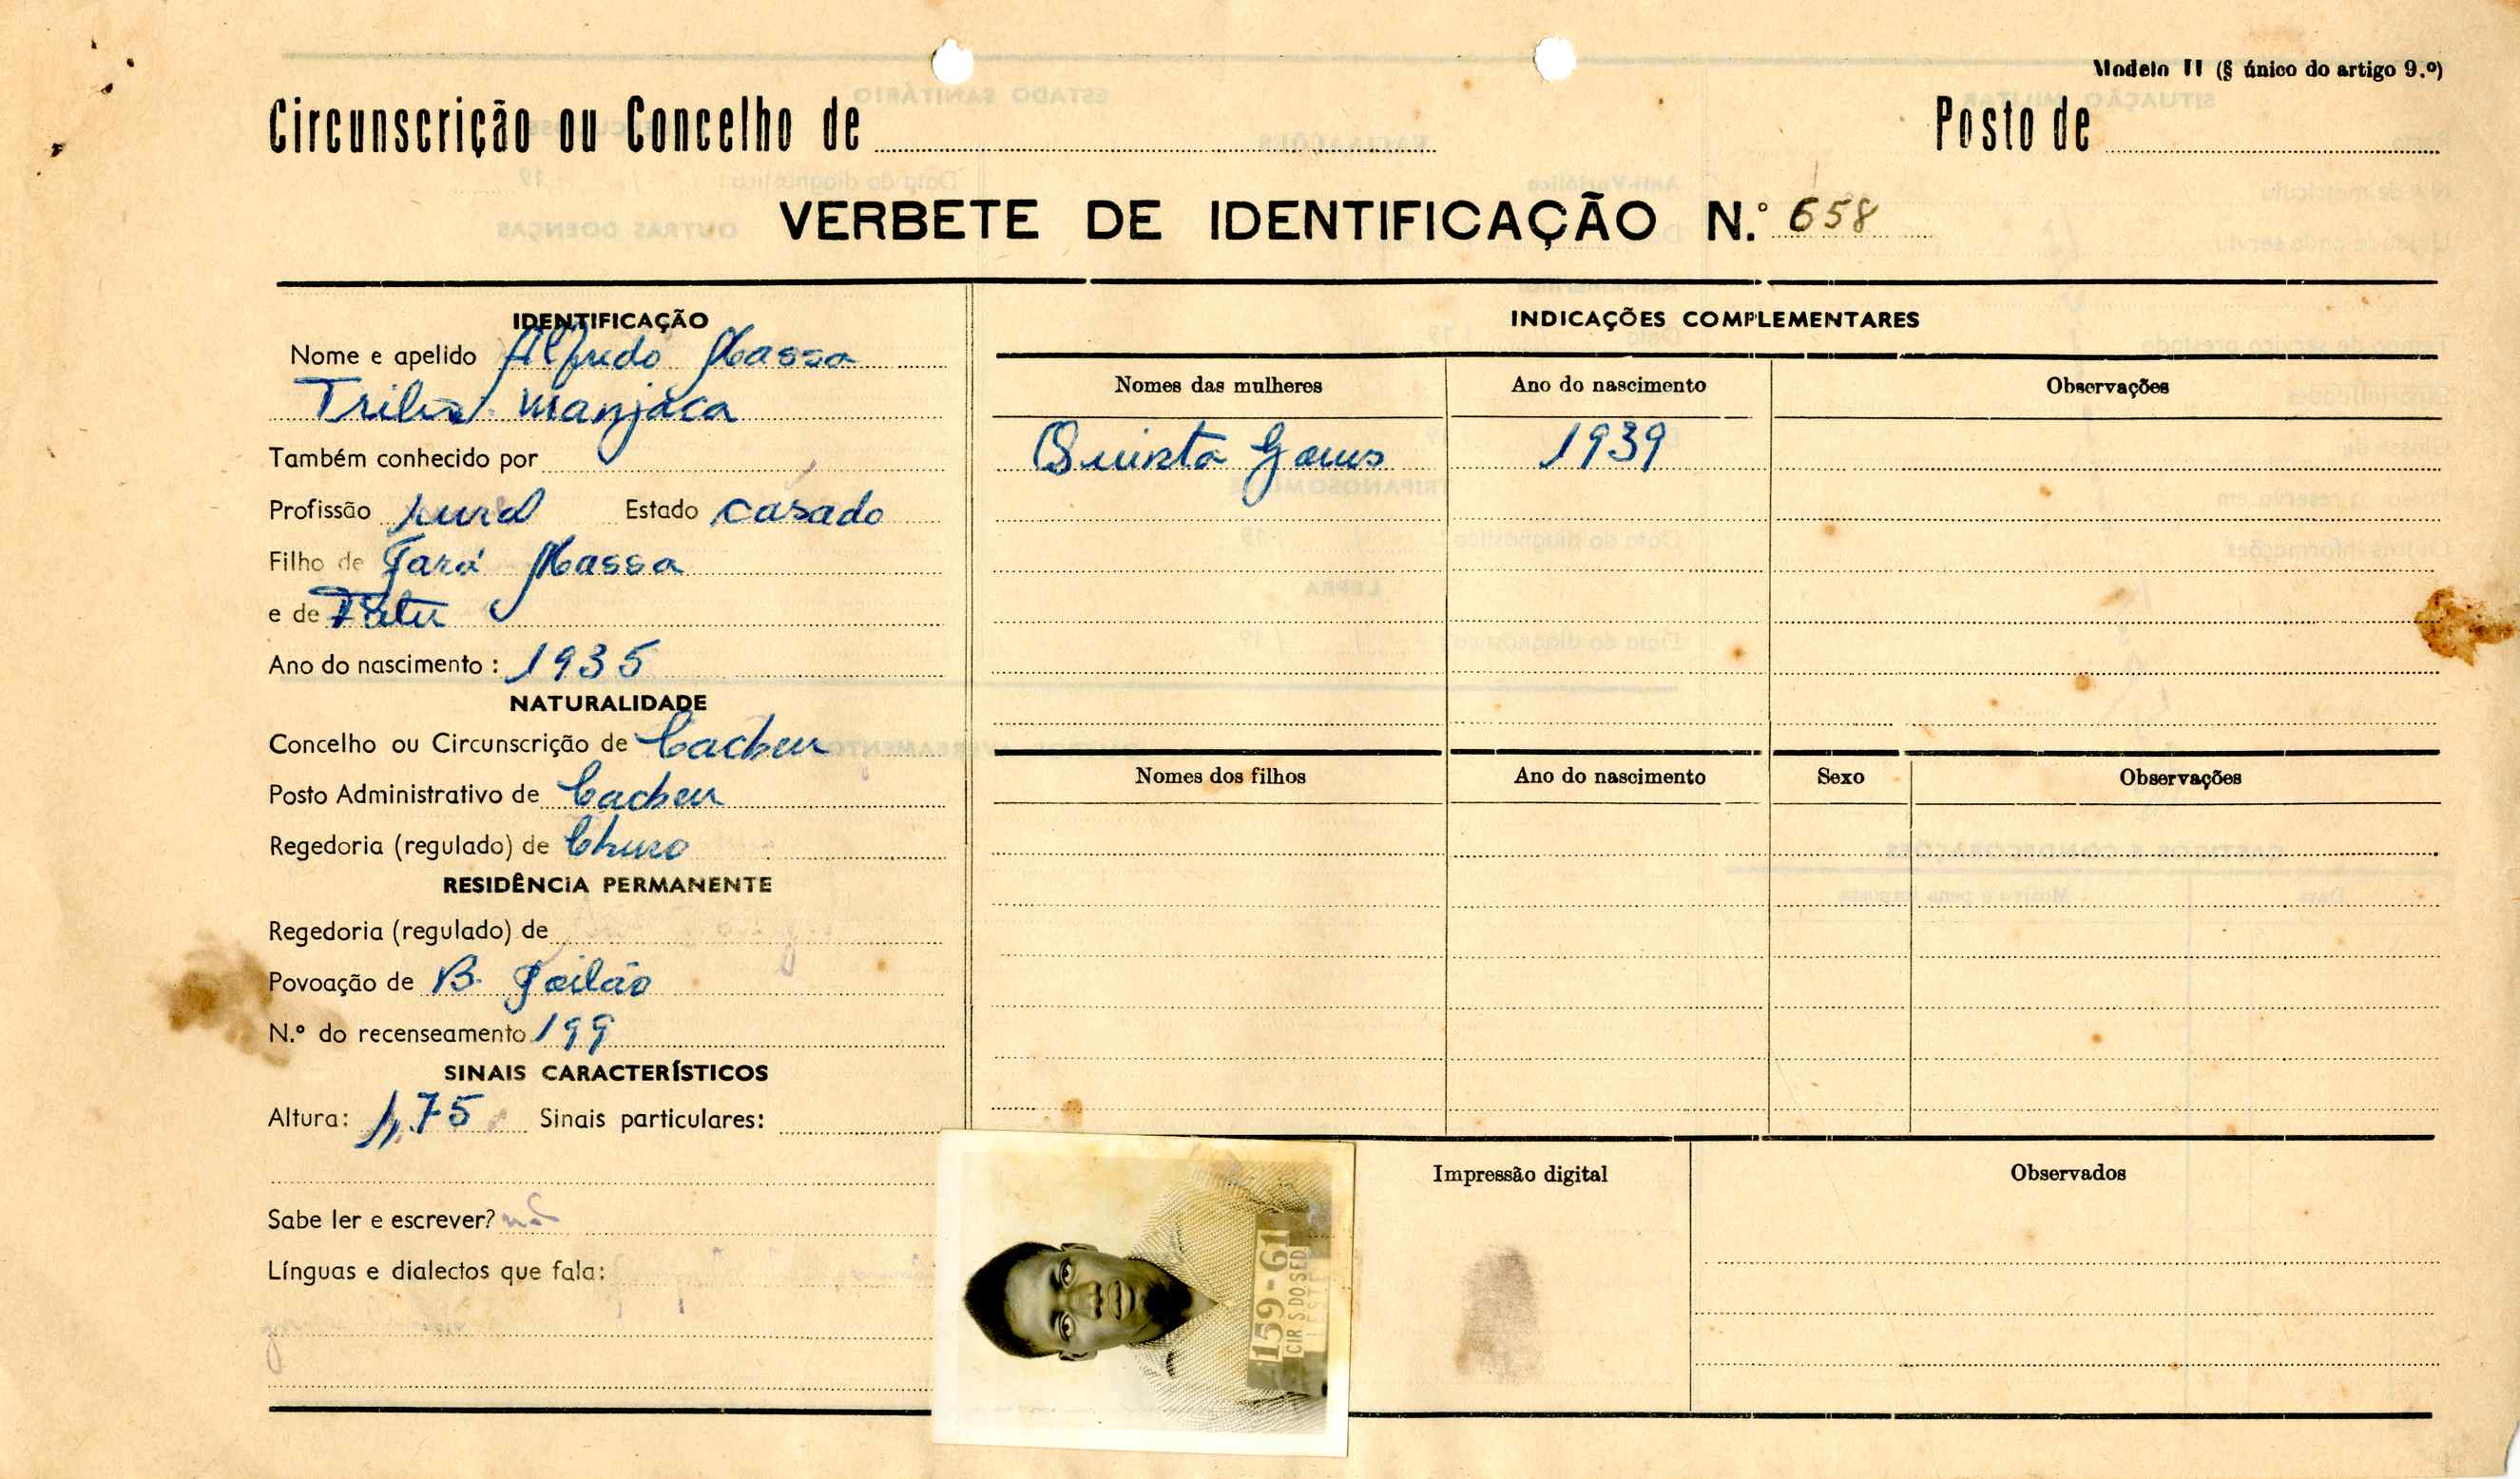 Modelo II (§ único do artigo 9.º)
Circunscrição ou Concelho de
Posto de
VERBETE DE IDENTIFICAÇÃO N.º 658
IDENTIFICAÇÃO
Nome e apelido Alfredo Massa
Tribu manjaca
Também conhecido por
Profissão rural Estado casado
Filho de Jará Massa
e de
Ano do nascimento: 1935
NATURALIDADE
Concelho ou Circunscrição de Cacheu
Posto Administrativo de Cacheu
Regedoria (regulado) de Churo
RESIDÊNCIA PERMANENTE
Regedoria (regulado) de
Povoação de B.
N.º do recenseamento 199
SINAIS CARACTERÍSTICOS
Altura: 1,75 Sinais particulares:
Sabe ler e escrever? não
Línguas e dialectos que fala:
INDICAÇÕES COMPLEMENTARES
Nomes das mulheres Ano do nascimento Observações
Quinta Gomes 1939
Nomes dos filhos Ano do nascimento Sexo Observações
159-61
CIR S DOSED
Impressão digital
Observados